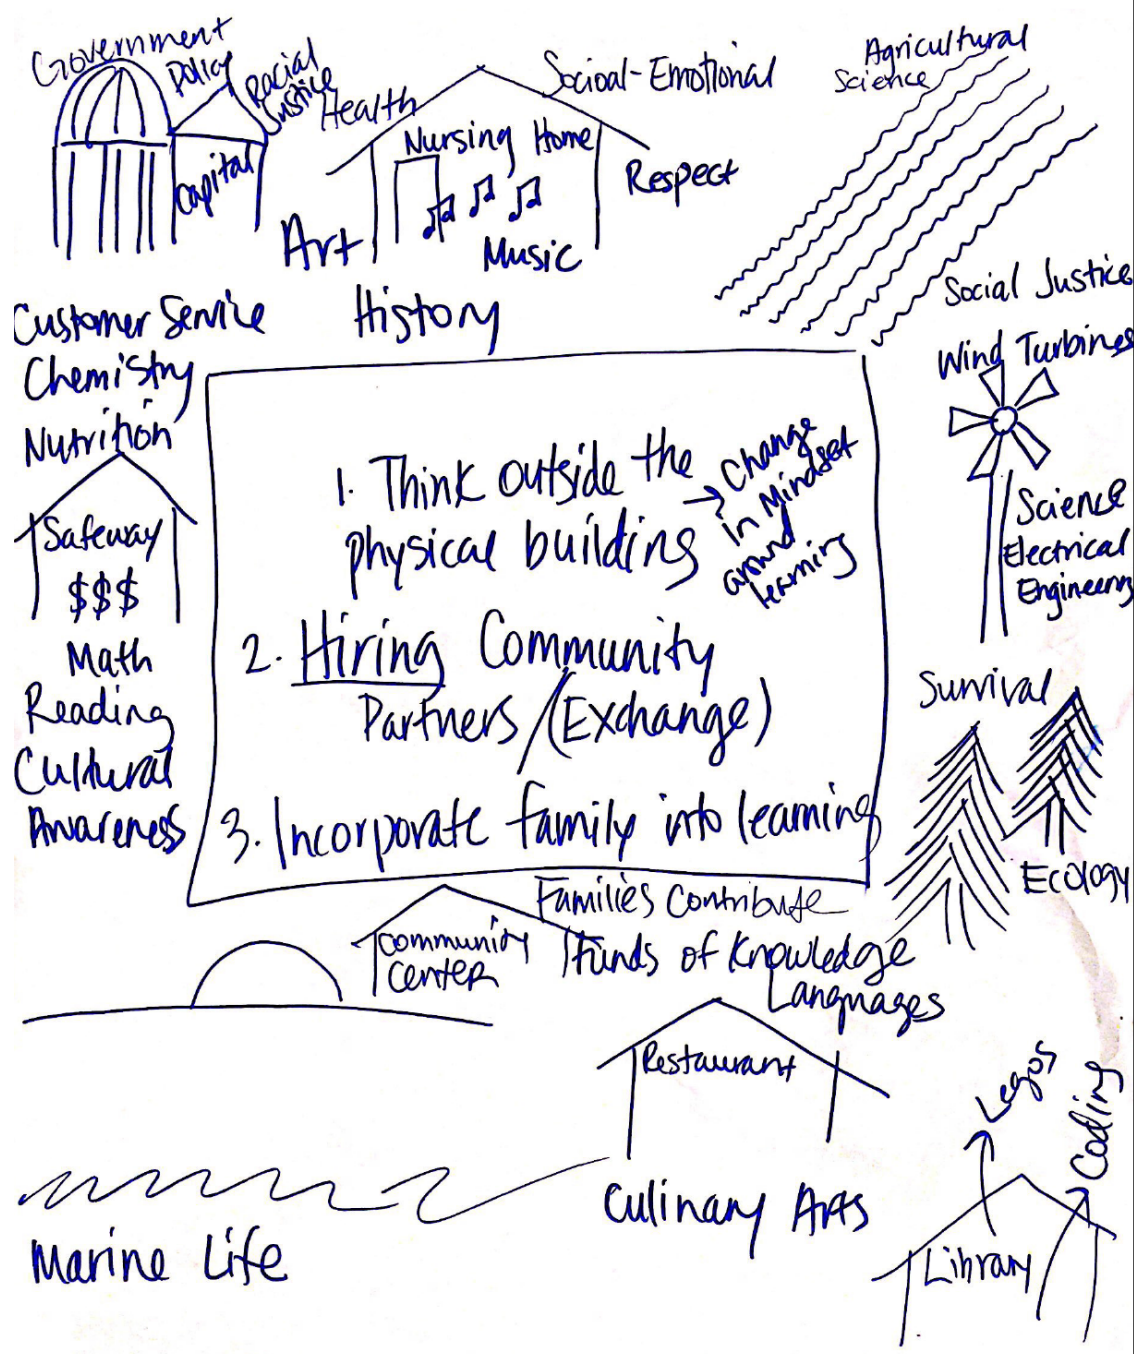 Government
Policy
Racial
Justice
Capital
Health
Socioal-Emotional
Nursing Home
Respect
Art
Music
History
Agricultural
Science
Social Justice
Wind Turbines
Science
Electrical
Engineering
Customer Service
Chemistry
Nutrition
Safeway
$$$
Math
Reading
Cultural
Awareness
1. Think outside the
physical building
→ Change
in Mindset
around
learning
2. Hiring Community
Partners / (Exchange)
3. Incorporate family into learning
Survival
Ecology
Families Contribute
Funds of Knowledge
Languages
Community
Center
Restaurant
Culinary Arts
Marine Life
Legos
Coding
Library